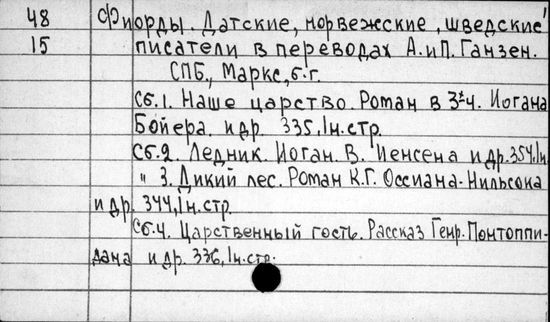 48 Фиорды. Датские, норвежские, шведские
15 писатели в переводах А. и П. Ганзен.
СПБ., Маркс, б.г.
Сб.1. Наше царство. Роман в 3х ч. Иогана
Бойера. и др. 335, 1н.стр.
Сб.2. Ледник. Иоган. В. Иенсена и др. 354, 1н.
" 3. Дикий лес. Роман К.Г. Оссиана-Нильсона
и др. 344, 1н.стр.
Сб.4. Царственный гость. Рассказ Генр. Понтоппи-
дана и др. 336, 1н.стр.